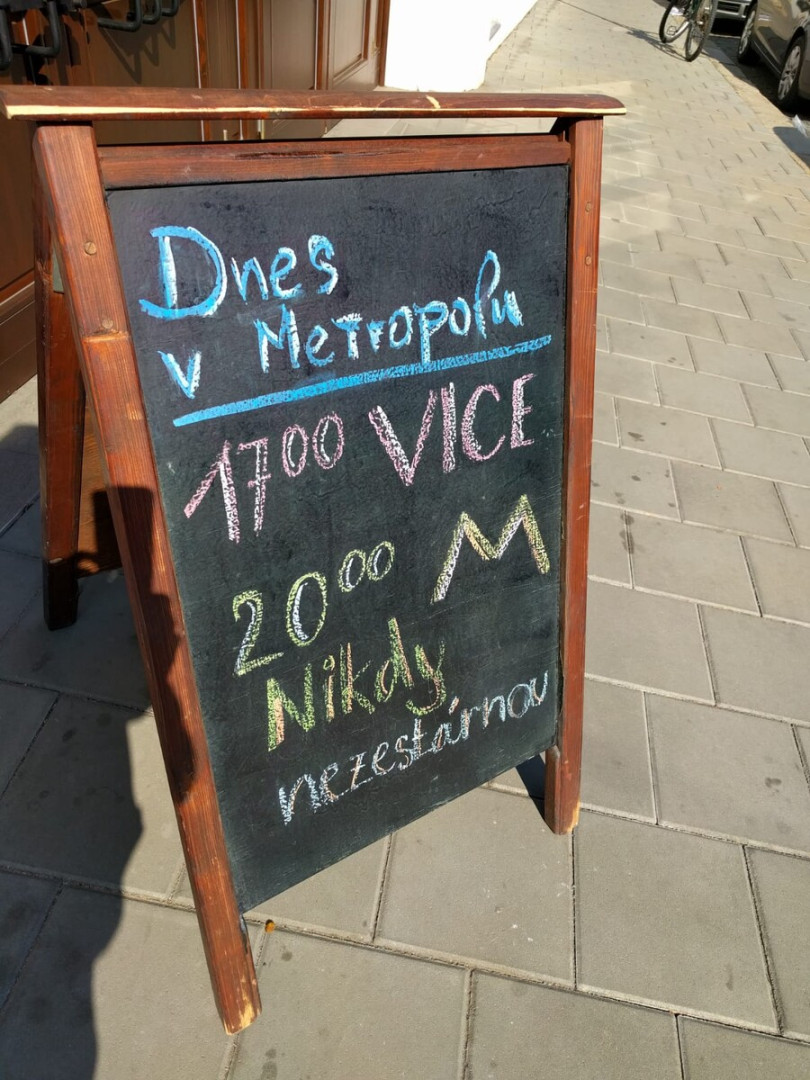 Dnes
v Metropolu
17⁰⁰ VICE
20⁰⁰ M
Nikdy
nezestárnou